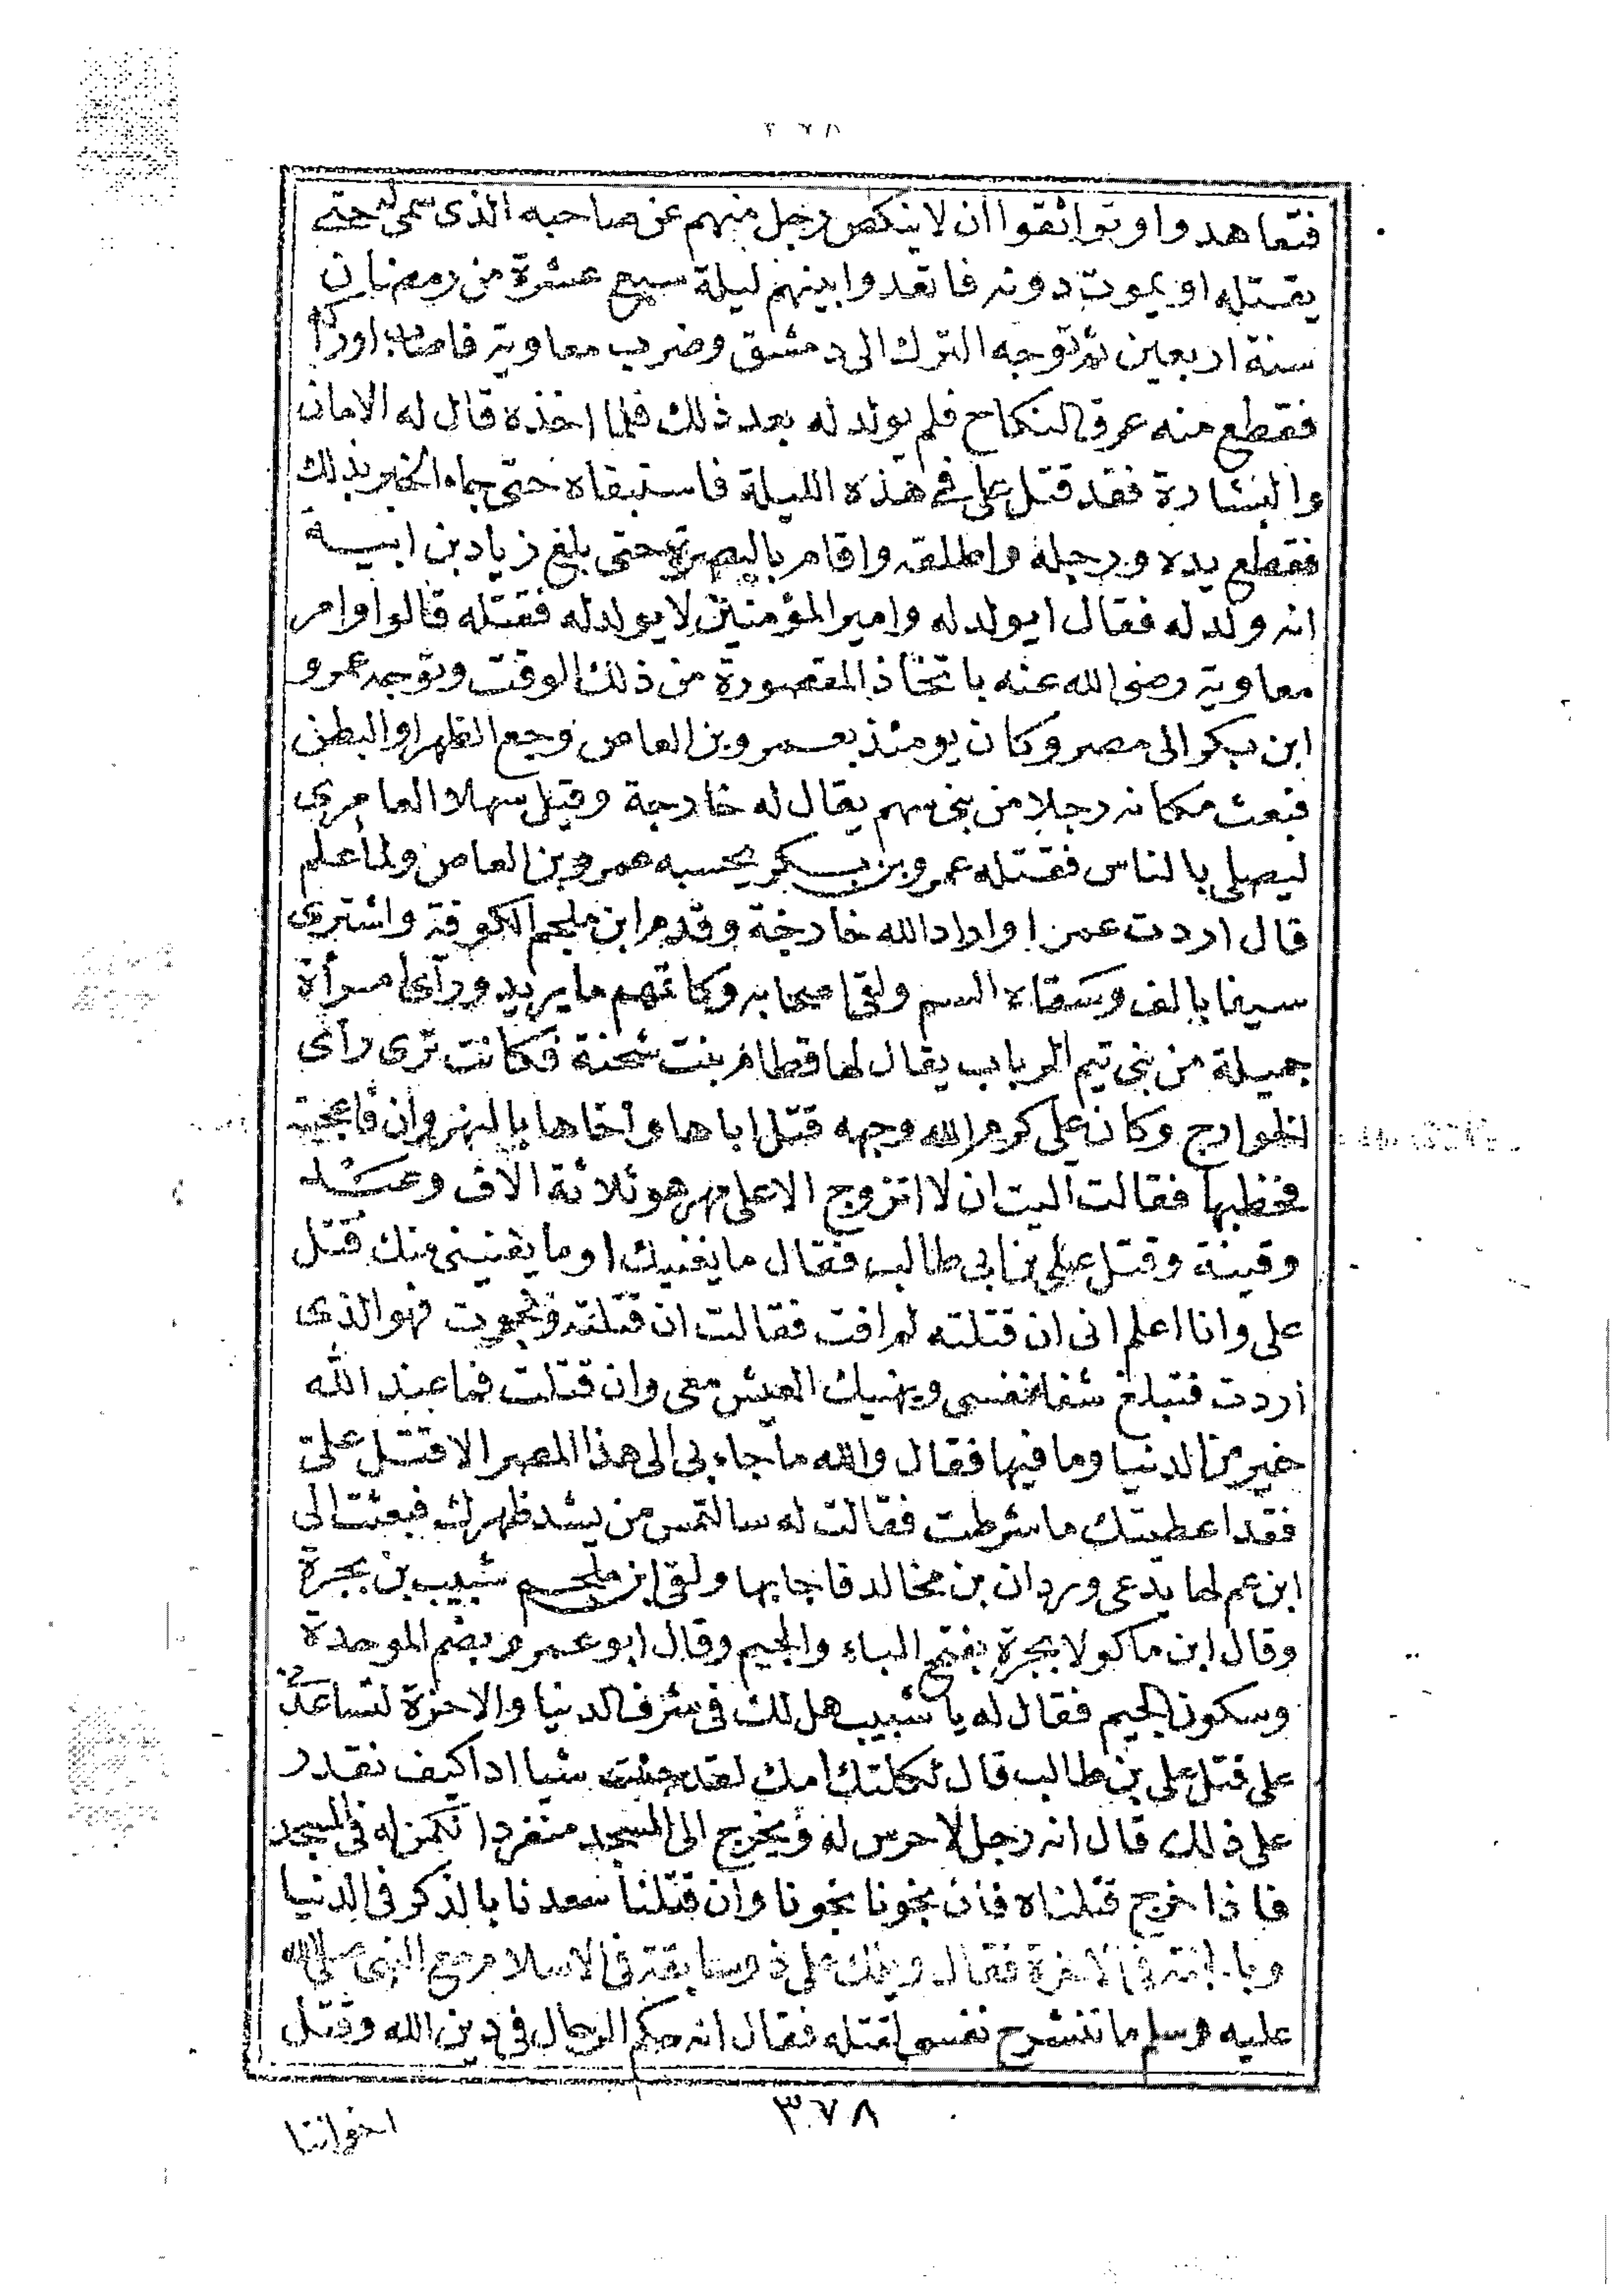 ٣٧٨
فتعاهدوا وتواثقوا أن لا ينكص رجل منهم عن صاحبه الذى سمى له حتى
يقتله او يموت دونه فاتعدوا بينهم ليلة سبع عشرة من رمضان
سنة اربعين ثم توجه البرك الى دمشق وضرب معاوية فاصاب اوراكه
فقطع منه عرق النكاح فلم يولد له بعد ذلك فلما اخذه قال له الامان
والبشارة فقد قتل على فى هذه الليلة فاستبقاه حتى جاءه الخبر بذلك
فقطع يده ورجله واطلقه واقام بالبصرة حتى بلغ زياد بن ابيه
انه ولد له فقال ايولد له وامير المؤمنين لا يولد له فقتله قالوا وامر
معاوية رضى الله عنه باتخاذ المقصورة من ذلك الوقت وتوجه عمرو
ابن بكر الى مصر وكان يومئذ بعمرو بن العاص وجع الظهر او البطن
فبعث مكانه رجلا من بنى سهم يقال له خارجة وقيل سهلا العامرى
ليصلى بالناس فقتله عمرو بن بكر يحسبه عمرو بن العاص ولما علم
قال اردت عمرا واراد الله خارجة وقدم ابن ملجم الكوفة واشترى
سيفا بالف وسقاه السم ولقى اصحابه وكاتمهم ما يريد ورأى امرأة
جميلة من بنى تيم الرباب يقال لها قطام بنت شحنة فكانت ترى رأى
الخوارج وكان على كرم الله وجهه قتل اباها واخاها بالنهروان فأعجبته
فخطبها فقالت آليت ان لا اتزوج الا على مهر هو ثلاثة آلاف وعبد
وقينة وقتل على بن ابى طالب فقال ما يغنيك او ما يغنينى منك قتل
على وانا اعلم انى ان قتلته لم افت فقالت ان قتلته ونجوت فهو الذى
أردت فتبلغ شفاء نفسى ويهنيك العيش معى وان قتلت فما عند الله
خير من الدنيا وما فيها فقال والله ما جاء بى الى هذا المصر الا قتل على
فقد اعطيتك ما شرطت فقالت له سالتمس من يشد ظهرك فبعثت الى
ابن عم لها يدعى وردان بن مخالد فاجابها ولقى ابن ملجم شبيب بن بجرة
وقال ابن ماكولا بجرة بفتح الباء والجيم وقال ابو عمرو بضم الموحدة
وسكون الجيم فقال له يا شبيب هل لك فى شرف الدنيا والاخرة لتساعد
على قتل على بن طالب قال ثكلتك امك لقد جئت شيا ادا كيف نقدر
على ذلك قال انه رجل لا حرس له ويخرج الى المسجد منفردا نكمن له فى المسجد
فاذا خرج قتلناه فان نجونا نجونا وان قتلنا سعدنا بالذكر فى الدنيا
وبالجنة فى الاخرة فقال ويلك على ذو سابقة فى الاسلام مع النبى صلى الله
عليه وسلم ما تنشرح نفسى لقتله فقال انه حكم الرجال فى دين الله وقتل
٣٧٨
اخواننا